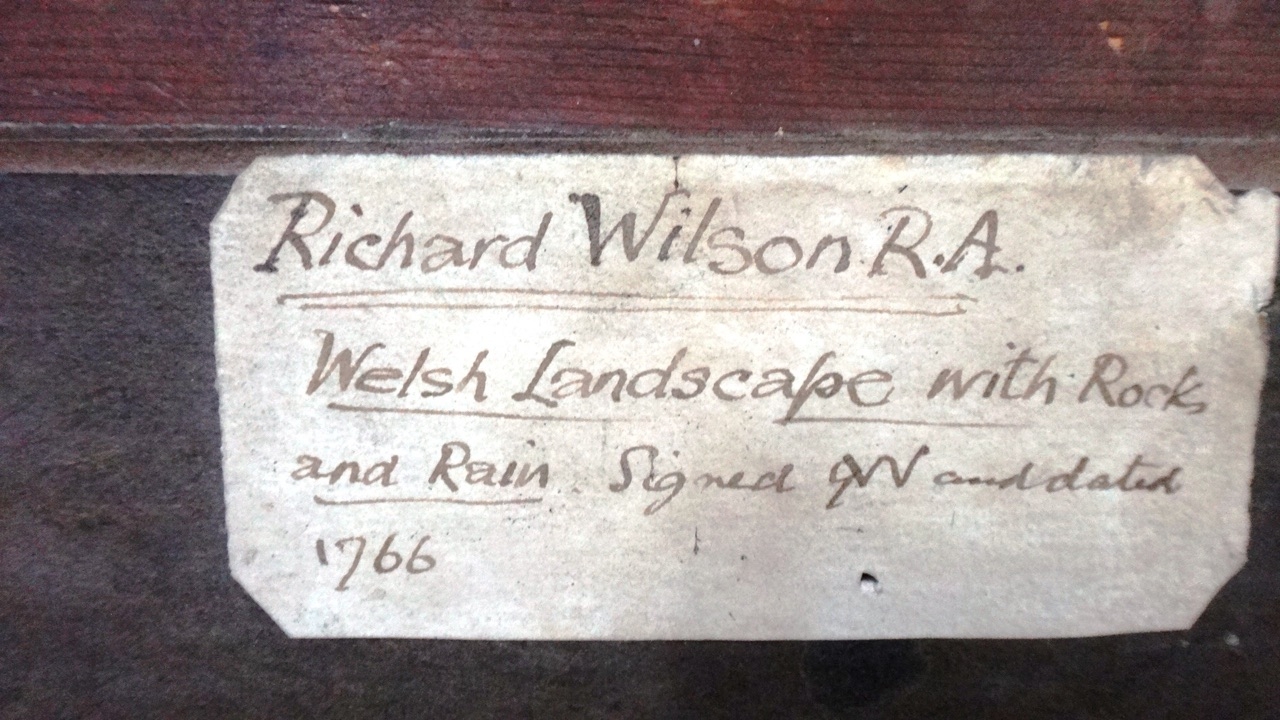 Richard Wilson R.A.
Welsh Landscape with Rocks
and Rain. Signed RW and dated
1766